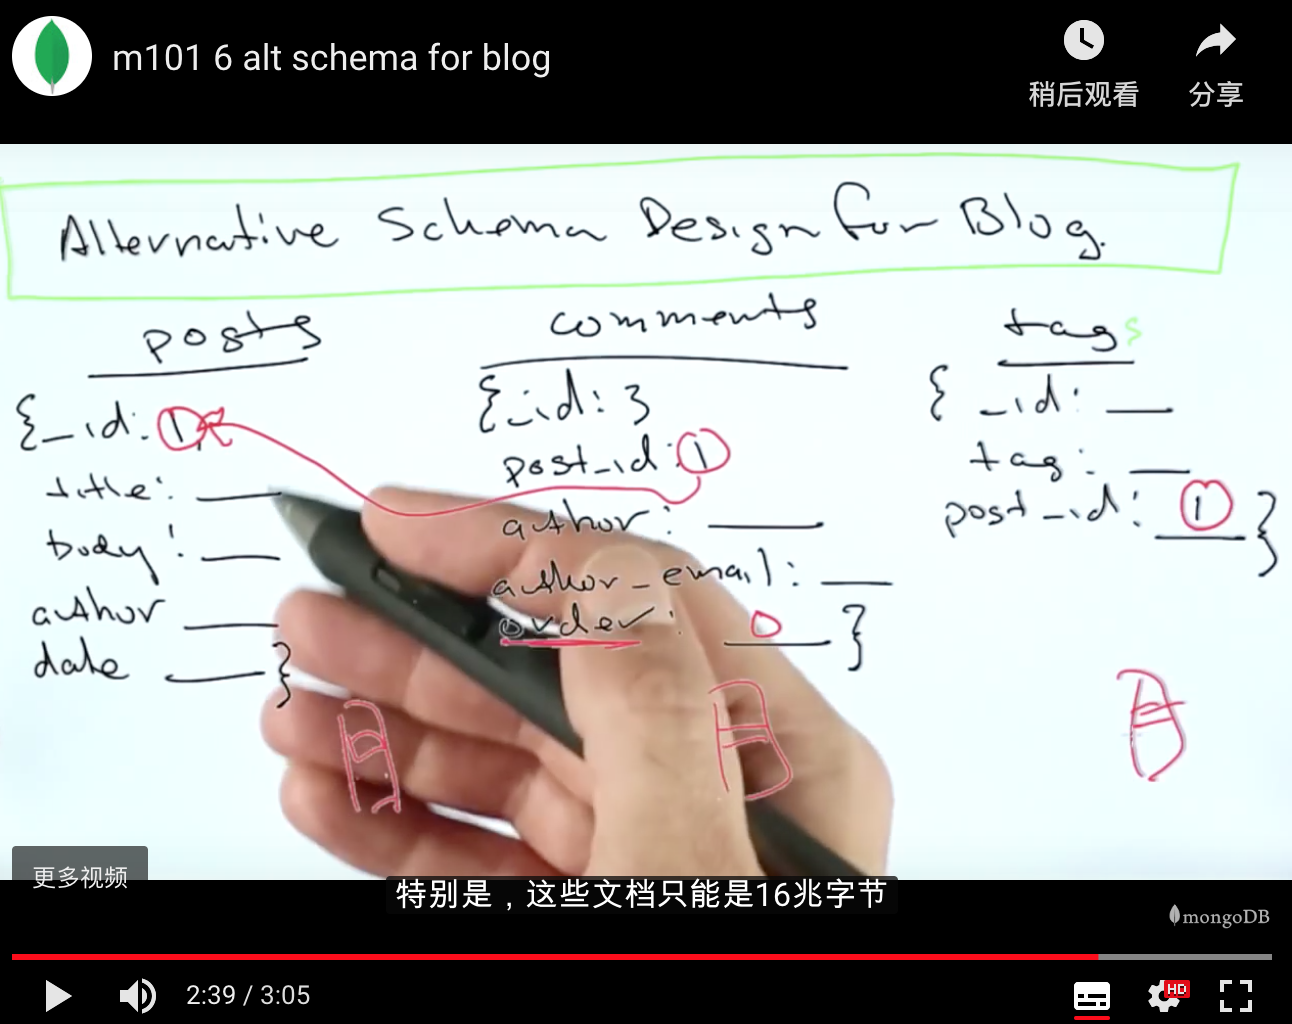 m101 6 alt schema for blog
稍后观看
分享
Alternative Schema Design for Blog.
posts
{_id: 1,
title: ___
body: ___
author ___
date ___ }
comments
{_id: 3
post_id: 1
author: ___
author_email: ___
order: 0 }
tags
{ _id: ___
tag: ___
post_id: 1 }
更多视频
特别是，这些文档只能是16兆字节
mongoDB
2:39 / 3:05
HD